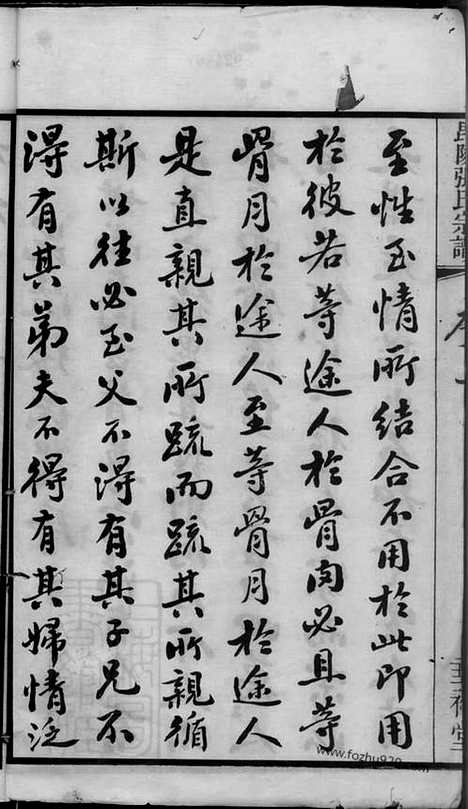 張氏宗譜
至性至情所結合不用於此即用
於彼若等途人於骨肉必且等
骨月於途人至等骨月於途人
是直親其所疏而疏其所親循
斯以往必至父不淂有其子兄不
淂有其弟夫不得有其婦情泛
www.fozhu920.com